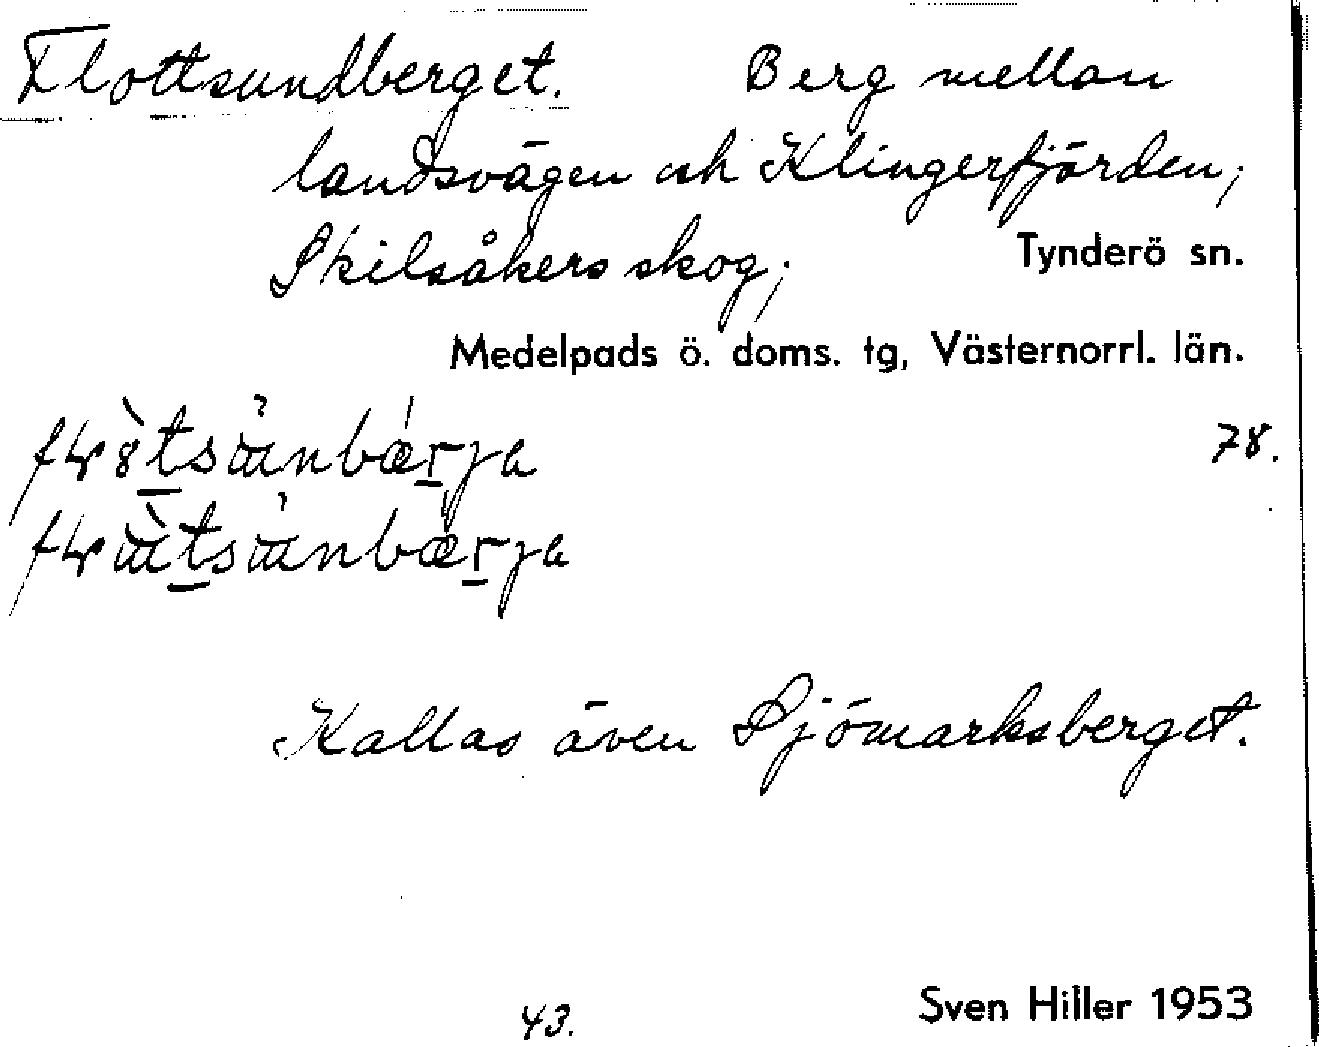 Flottsundberget. Berg mellan
landsvägen och Klingerfjärden,
Skilsåkers skog,
Tynderö sn.
Medelpads ö. doms. tg, Västernorrl. län.
78.
Kallas även Sjömarksberget.
43.
Sven Hiller 1953